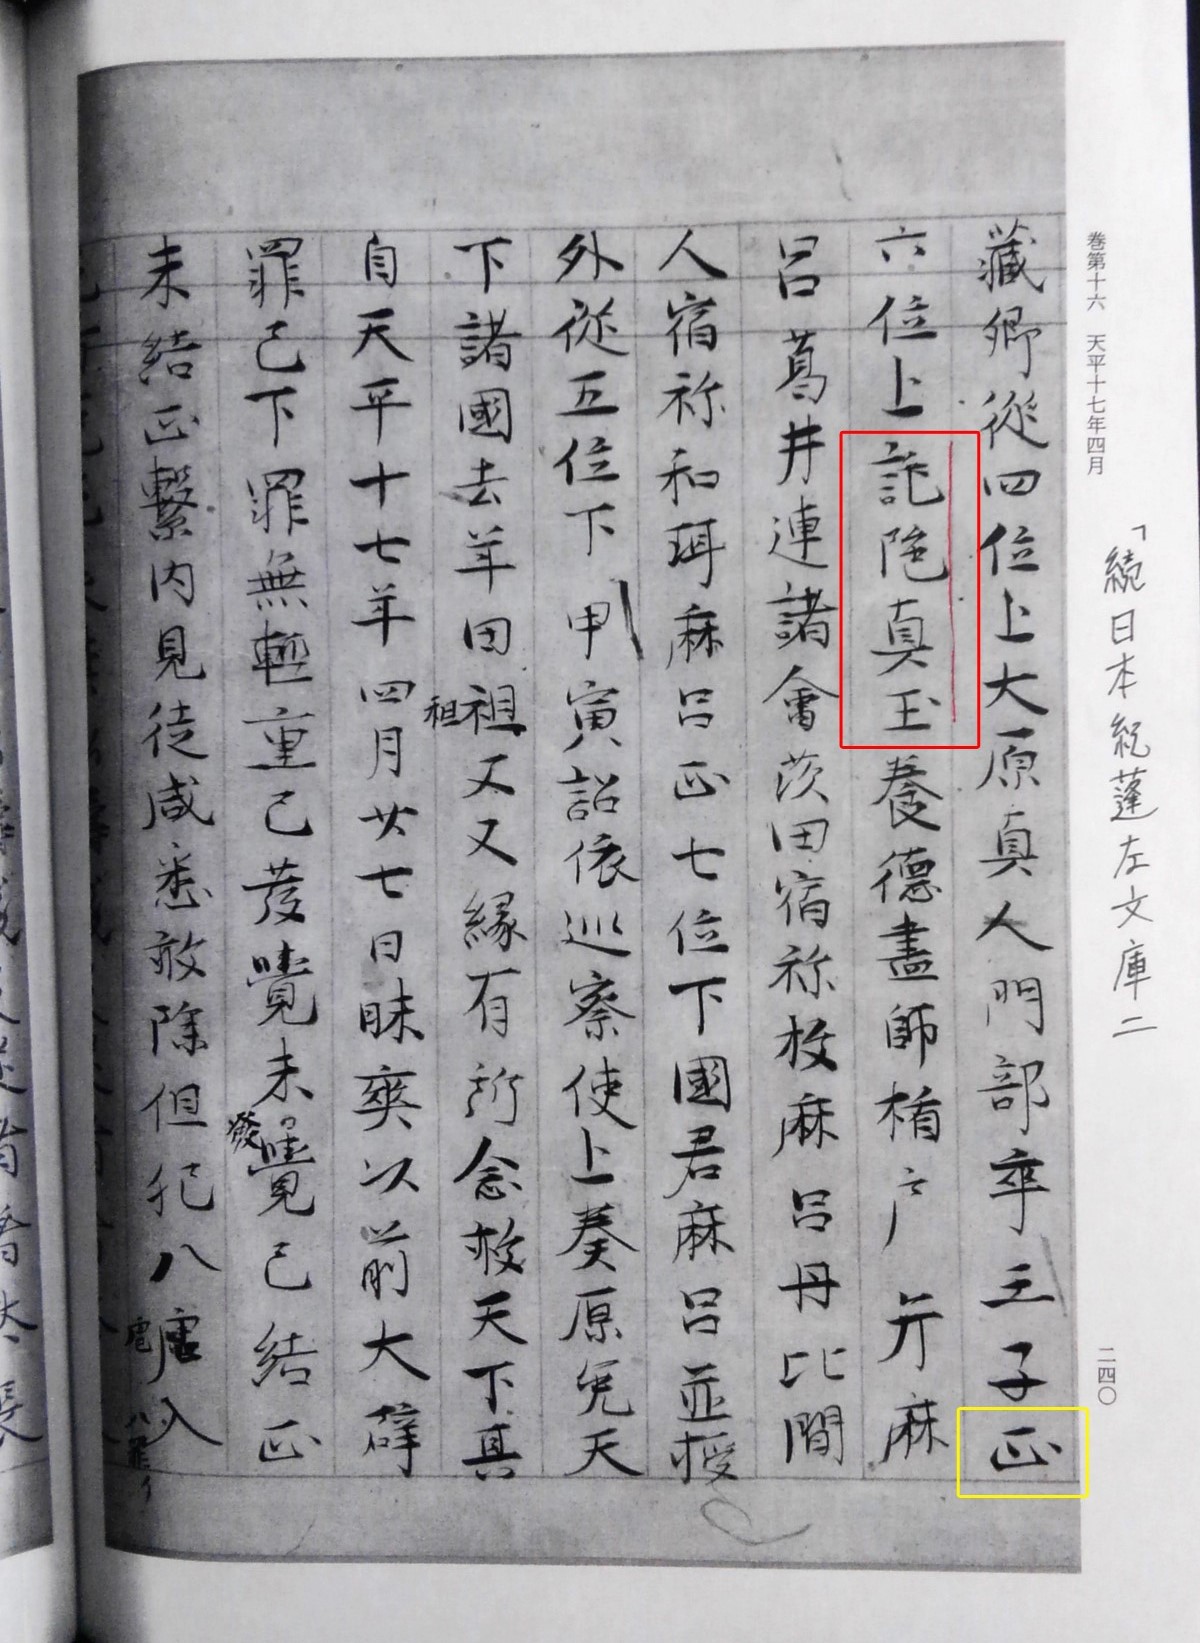 巻第十六　天平十七年四月
二四〇
「続日本紀蓬左文庫二
藏卿從四位上大原真人門部卒壬子正
六位上詑陁真玉養德畫師楯戸弁麻
呂葛井連諸會茨田宿祢枚麻呂丹比間
人宿祢和珥麻呂正七位下國君麻呂並授
外從五位下甲寅詔依巡察使上奏原免天
下諸國去年田祖又又緣有所念救天下其
祖
自天平十七年四月廿七日昧爽以前大辟
罪已下罪無輕重已發覺未覺已結正
發
未結正繫内見徒咸悉赦除但犯八虐入
虐